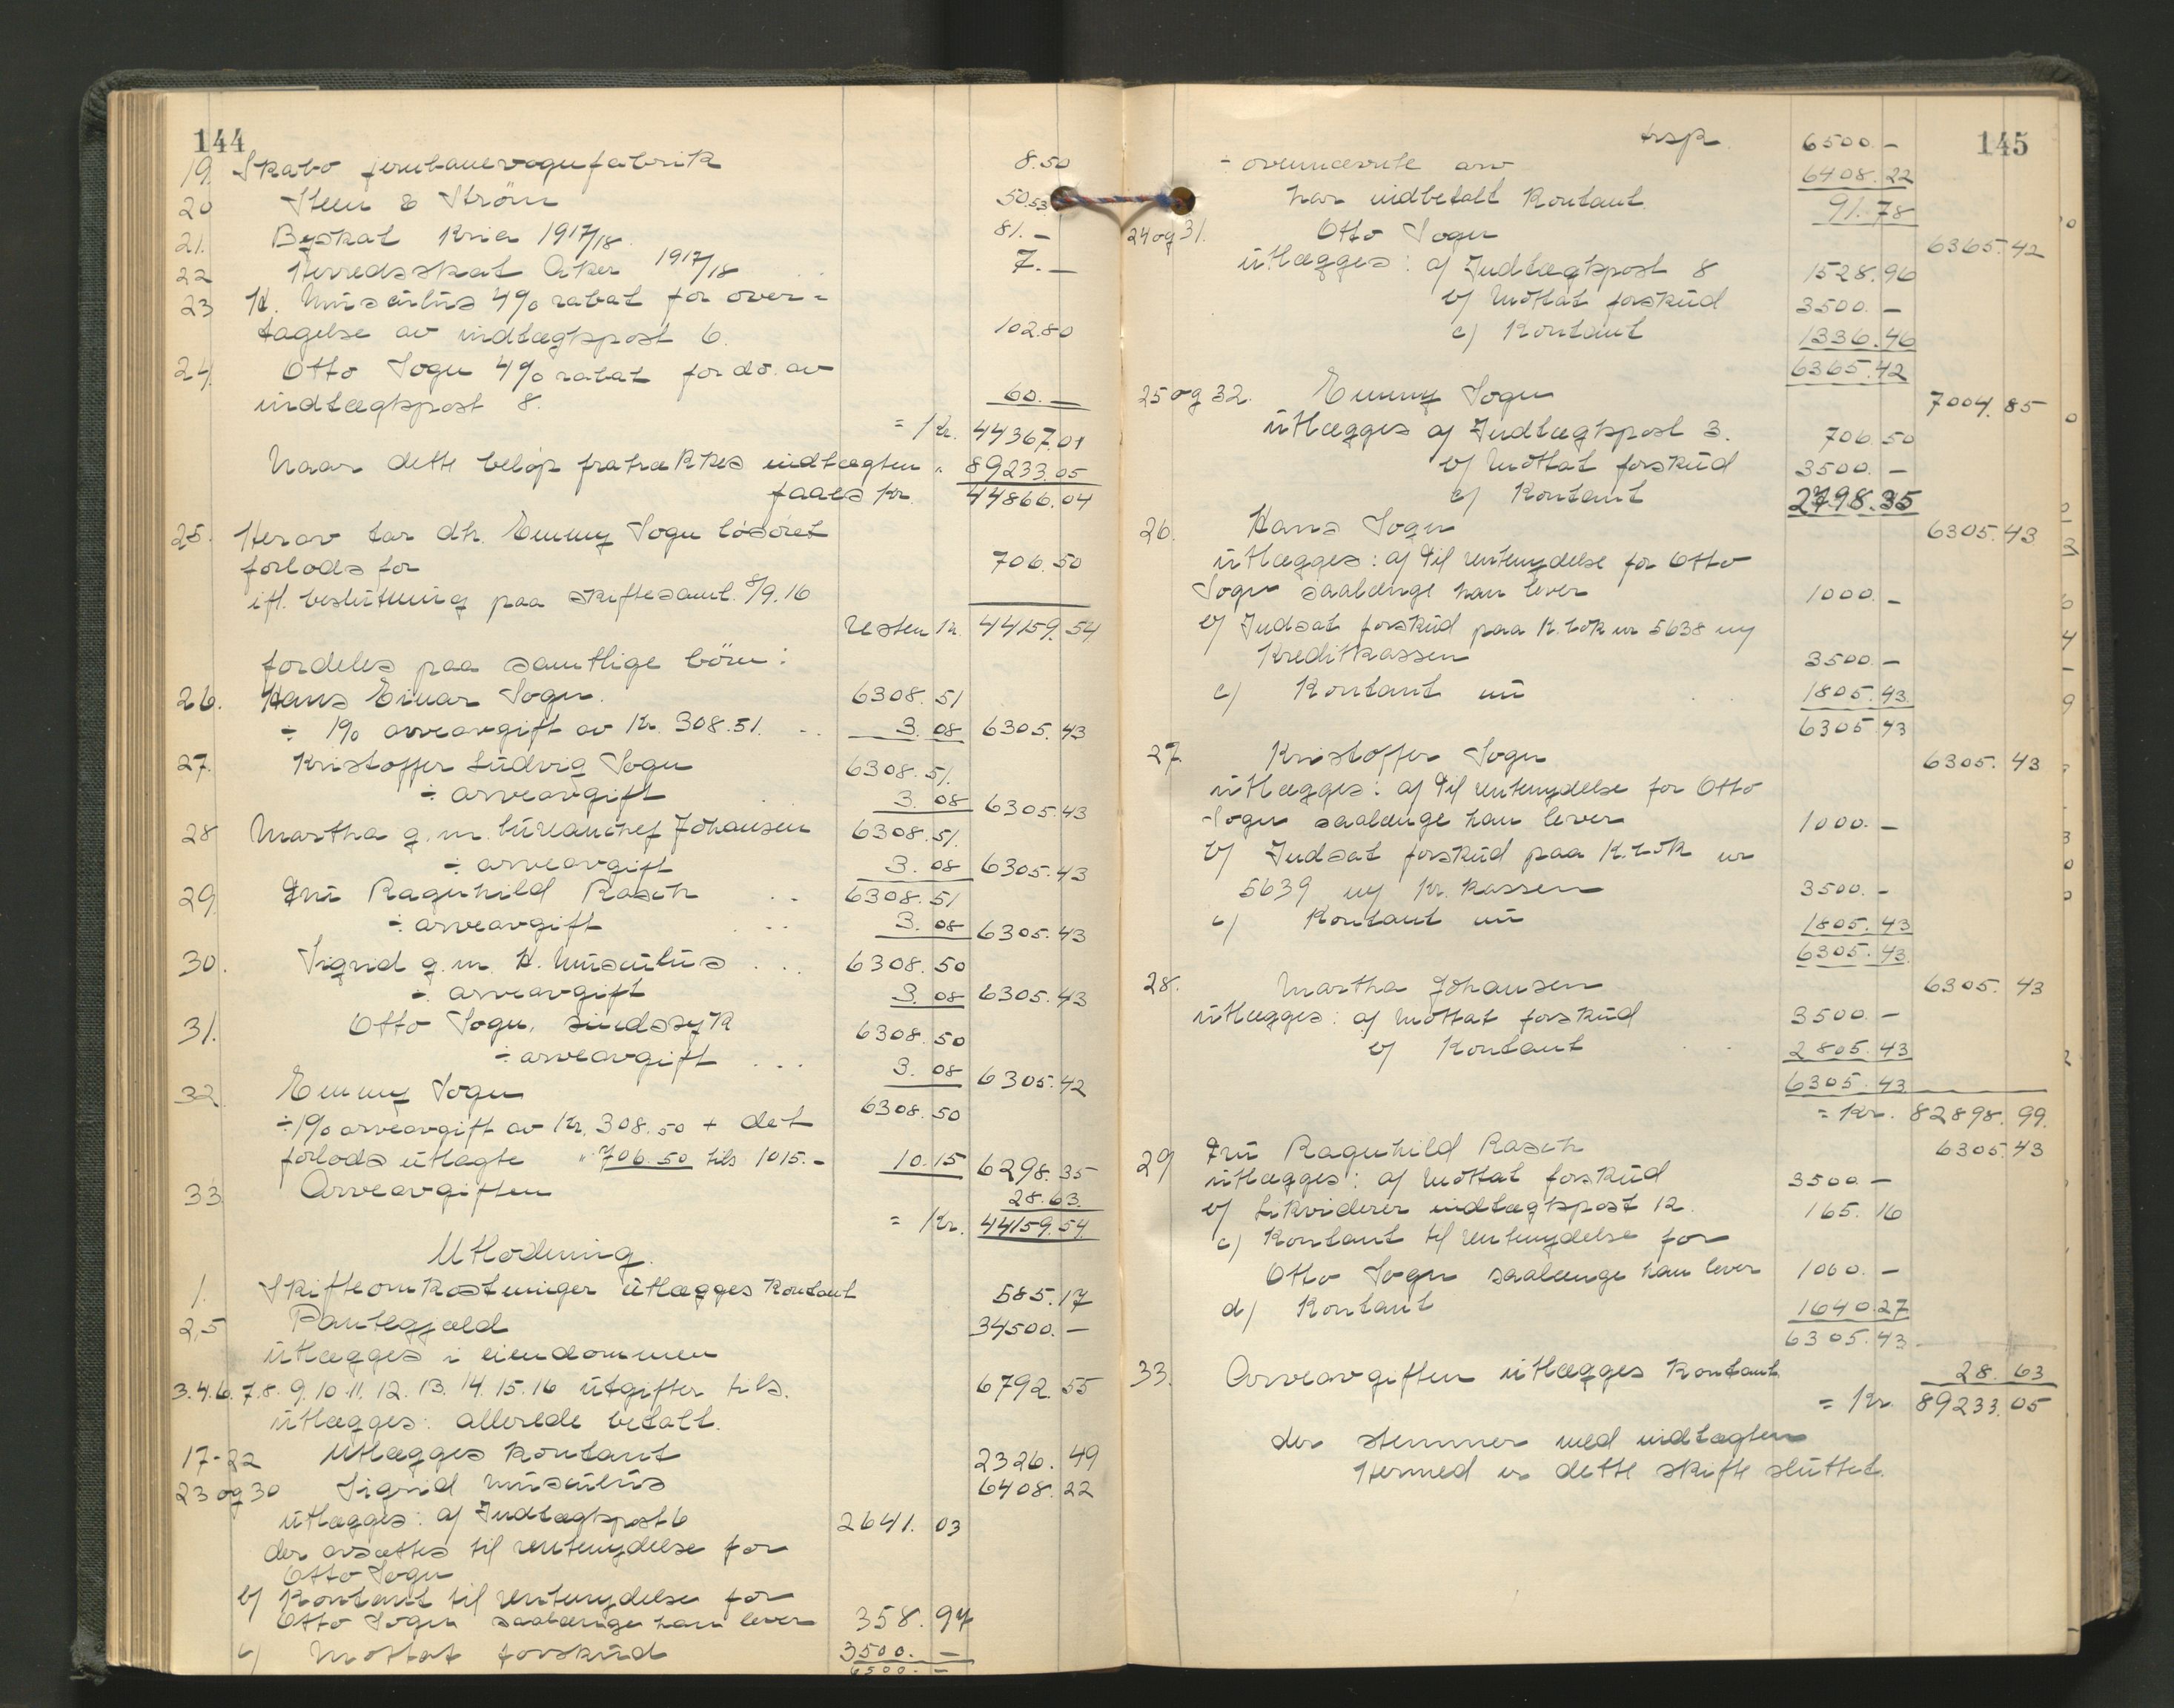 144
19. Skabo jernbanevognfabrik 8.50
20 Steen & Strøm 50.53
21. Byskat Kria 1917/18 81.—
22 Herredsskat Aker 1917/18 .. 7.—
23 H. Musculus 4% rabat for over-
tagelse av indtægtspost 6. 102.80
24. Otto Sogn 4% rabat for do. av
indtægtspost 8. 60.—
= Kr. 44367.01
Naar dette beløp fratrækkes indtægten " 89233.05
faaes kr. 44866.04
25. Herav tar dh. Emmy Sogn løsøret
forlods for 706.50
ifl. beslutning paa skiftesaml. 8/9.16
resten kr. 44159.54
fordeles paa samtlige børn:
26. Hans Einar Sogn. 6308.51
÷ 1% arveavgift av Kr. 308.51. .. 3.08 6305.43
27. Kristoffer Ludvig Sogn 6308.51.
÷ arveavgift . 3.08 6305.43
28 Martha g.m. bureauchef Johansen 6308.51.
÷ arveavgift 3.08 6305.43
29. Fru Ragnhild Rasch .. 6308.51
÷ arveavgift ... 3.08 6305.43
30. Sigrid g.m. H. Musculus ... 6308.50
÷ arveavgift 3.08 6305.43
31. Otto Sogn, sindssyk 6308.50
÷ arveavgift ... 3.08 6305.42
32 Emmy Sogn 6308.50
÷ 1% arveavgift av Kr. 308.50 + det
forlods utlagte " 706.50 tils 1015.- 10.15 6298.35
33 Arveavgiften 28.63.
= Kr. 44159.54.
Utlodning.
1. Skifteomkostninger utlægges kontant 585.17
2,5 Pantegjæld 34500.—
utlægges i eiendommen
3.4.6.7.8.9.10.11.12.13.14.15.16 utgifter tils. 6792.55
utlægges: allerede betalt.
17-22 Utlægges kontant 2326.49
23 og 30 Sigrid Musculus 6408.22
utlægges: a) Indtægtspost 6 2641.03
der avsættes til rentenydelse for
Otto Sogn
b) Kontant til rentenydelse for
Otto Sogn saalænge han lever 358.97
c) Mottat forskud 3500.—
6500.—
145
trsp. 6500.—
- ovennævnte arv 6408.22
har indbetalt kontant. 91.78
24 og 31. Otto Sogn 6365.42
utlægges: a) Indtægtspost 8 1528.96
b) Mottat forskud 3500.—
c) Kontant 1336.46
6365.42
25 og 32. Emmy Sogn 7004.85
utlægges a) Indtægtspost 3. 706.50
b) Mottat forskud 3500.—
c) Kontant 2798.35
26. Hans Sogn 6305.43
utlægges: a) til rentenydelse for Otto
Sogn saalænge han lever 1000.—
b) Indsat forskud paa K. bok nr 5638 my
Kreditkassen 3500.—
c) Kontant nu .. 1805.43
6305.43
27. Kristoffer Sogn 6305.43
utlægges: a) til rentenydelse for Otto
Sogn saalænge han lever 1000.—
b) Indsat forskud paa K. bok nr
5639 my Kr. kassen 3500.—
c) Kontant nu 1805.43
6305.43.
28. Martha Johansen 6305.43
utlægges: a) Mottat forskud 3500.—
b) Kontant .. 2805.43
6305.43
= Kr. 82898.99.
29 Fru Ragnhild Rasch 6305.43
utlægges: a) Mottat forskud 3500.—
b) Likviderer indtægtspost 12. 165.16
c) Kontant til rentenydelse for
Otto Sogn saalænge han lever 1000.—
d) Kontant 1640.27
6305.43.
33. Arveavgiften utlægges kontant 28.63
= Kr. 89233.05
der stemmer med indtægten
Hermed er dette skifte sluttet.